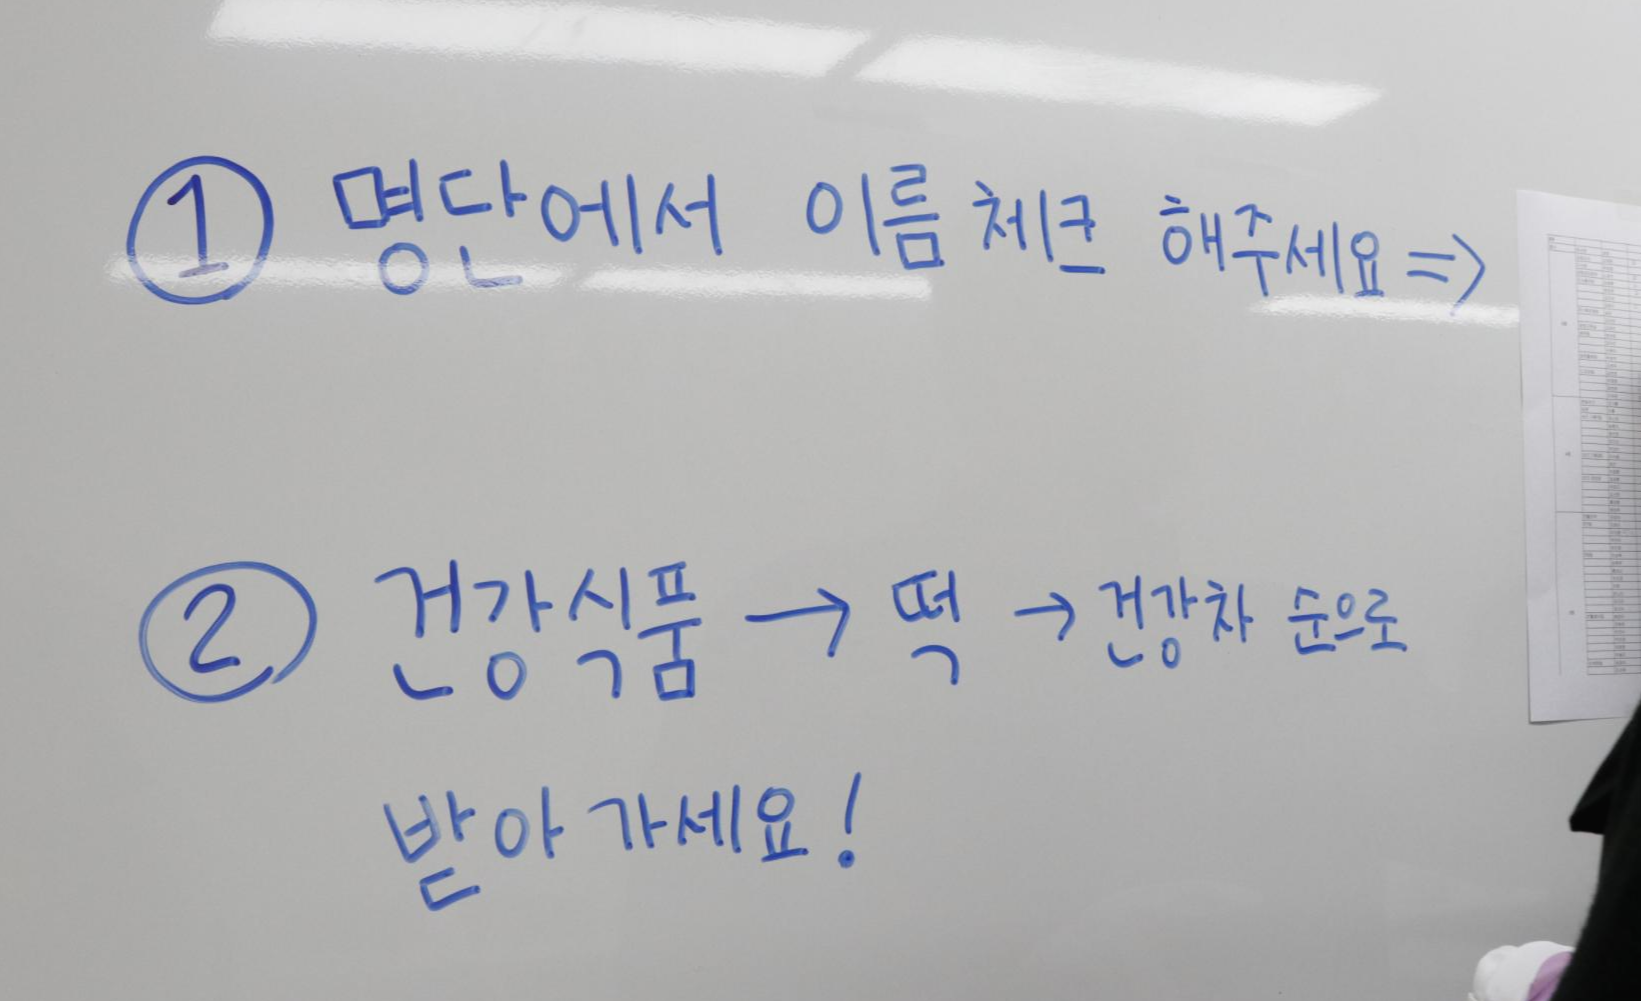 ① 명단에서 이름 체크 해주세요 ⇒
② 건강식품 → 떡 → 건강차 순으로
받아 가세요!